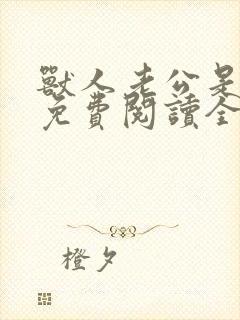 獸人老公是
免費閱讀全
橙夕